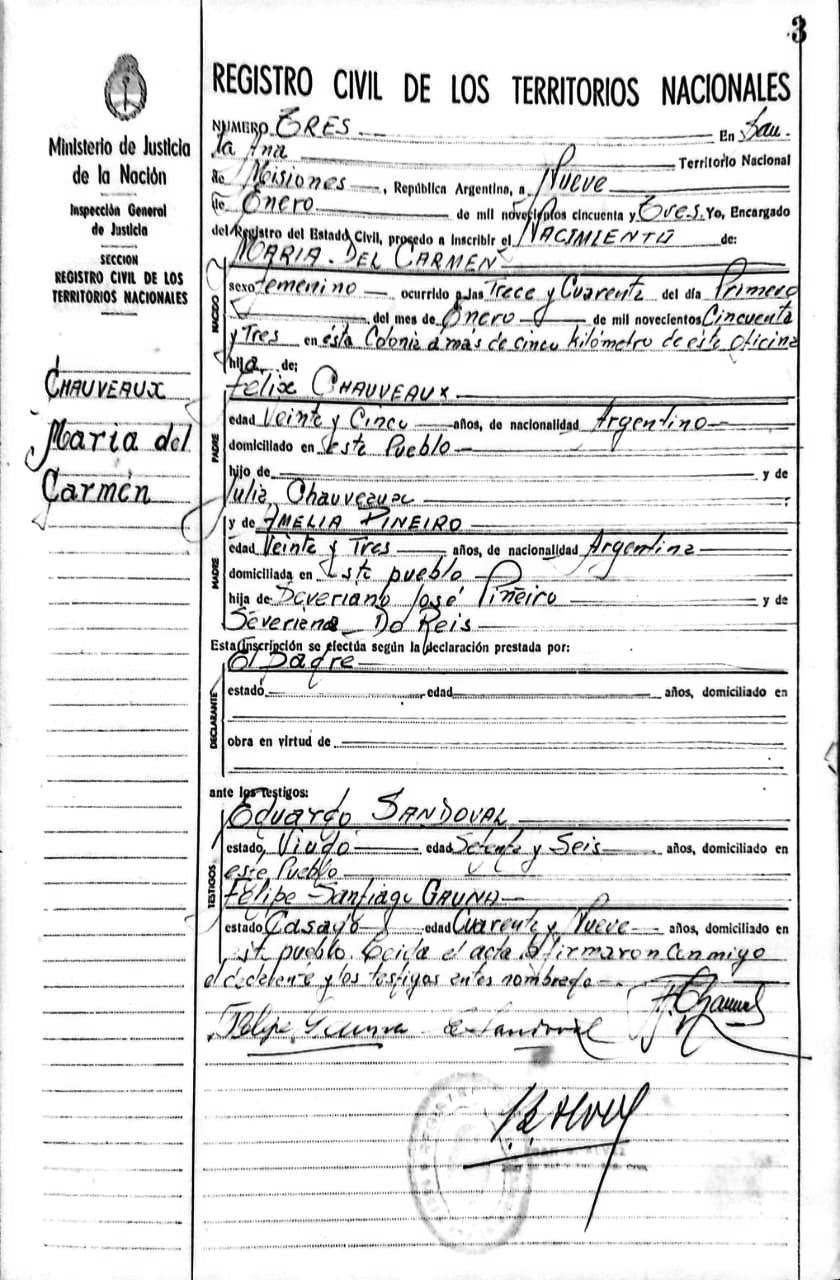 3
Ministerio de Justicia
de la Nación
Inspección General
de Justicia
SECCION
REGISTRO CIVIL DE LOS
TERRITORIOS NACIONALES
CHAUVEAUX
Maria del
Carmén
REGISTRO CIVIL DE LOS TERRITORIOS NACIONALES
NUMERO TRES En San-
ta Ana Territorio Nacional
de Misiones, República Argentina, a Nueve
de Enero de mil novecientos cincuenta y Tres. Yo, Encargado
del Registro del Estado Civil, procedo a inscribir el NACIMIENTO de:
MARIA DEL CARMEN
NACIDO
sexo femenino ocurrido a las Trece y Cuarenta del día Primero
del mes de Enero de mil novecientos Cincuenta
y Tres en ésta Colonia a más de cinco kilómetro de este oficina
hija de:
Felix CHAUVEAUX
PADRE
edad Veinte y Cinco años, de nacionalidad Argentino
domiciliado en este Pueblo
hijo de y de
Julia Chauveaux
y de AMELIA PIÑEIRO
MADRE
edad Veinte y Tres años, de nacionalidad Argentina
domiciliada en este pueblo
hija de Severiano José Piñeiro y de
Severiana Do Reis
Esta inscripción se efectúa según la declaración prestada por:
El Padre
DECLARANTE
estado edad años, domiciliado en
obra en virtud de
ante los testigos:
Eduardo SANDOVAL
TESTIGOS
estado, Viudo edad Setenta y Seis años, domiciliado en
este Pueblo
Felipe Santiago GAUNA
estado Casado edad Cuarente y Nueve años, domiciliado en
est pueblo. Leida el acta firmaron conmigo
el y los testigos antes nombrado
Felipe Gauna E Sandoval F. Chauveaux